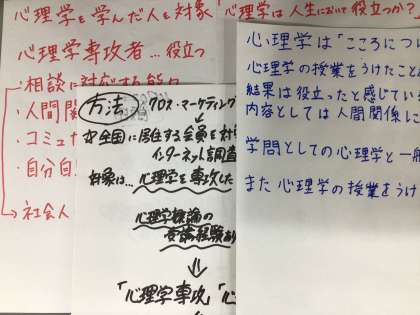 心理学を学んだ人を対象「心理学は人生において役立つか?
心理学専攻者…役立つ
・相談に対応する能力
・人間関
・コミュナ
・自分自
→社会人
方法 クロス・マーケティング
全国に居住する会員を対
インターネット調査
対象は…心理学を専攻した
心理学概論の
受講経験あり
「心理学専攻」「心
心理学は「こころについ
心理学の授業をうけたことが
結果は役立ったと感じている
内容としては人間関係に
学問としての心理学と一般
また心理学の授業をうけ